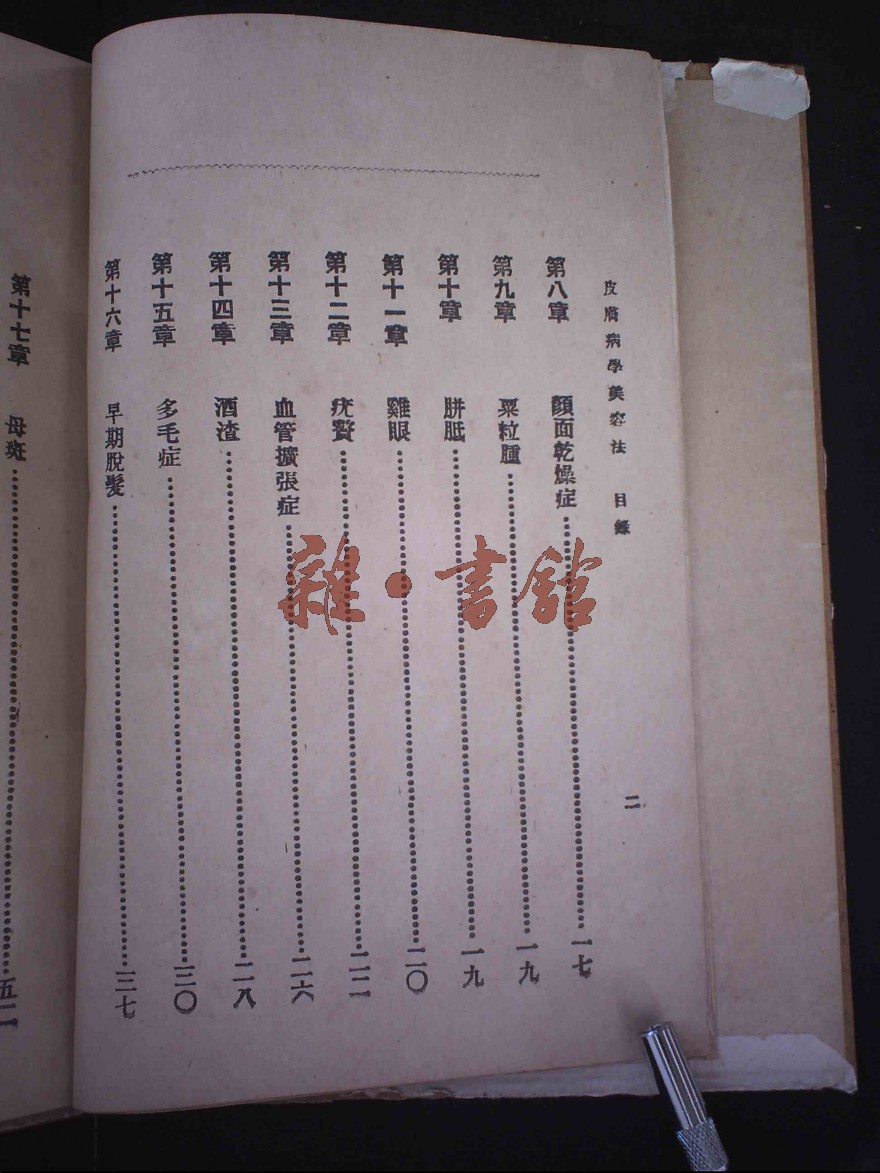 皮膚病學美容法 目錄 二
第八章 顏面乾燥症 一七
第九章 粟粒腫 一九
第十章 胼胝 一九
第十一章 雞眼 二〇
第十二章 疣贅 二二
第十三章 血管擴張症 二六
第十四章 酒渣 二八
第十五章 多毛症 三〇
第十六章 早期脫髮 三七
第十七章 母斑 五二
雜·書館